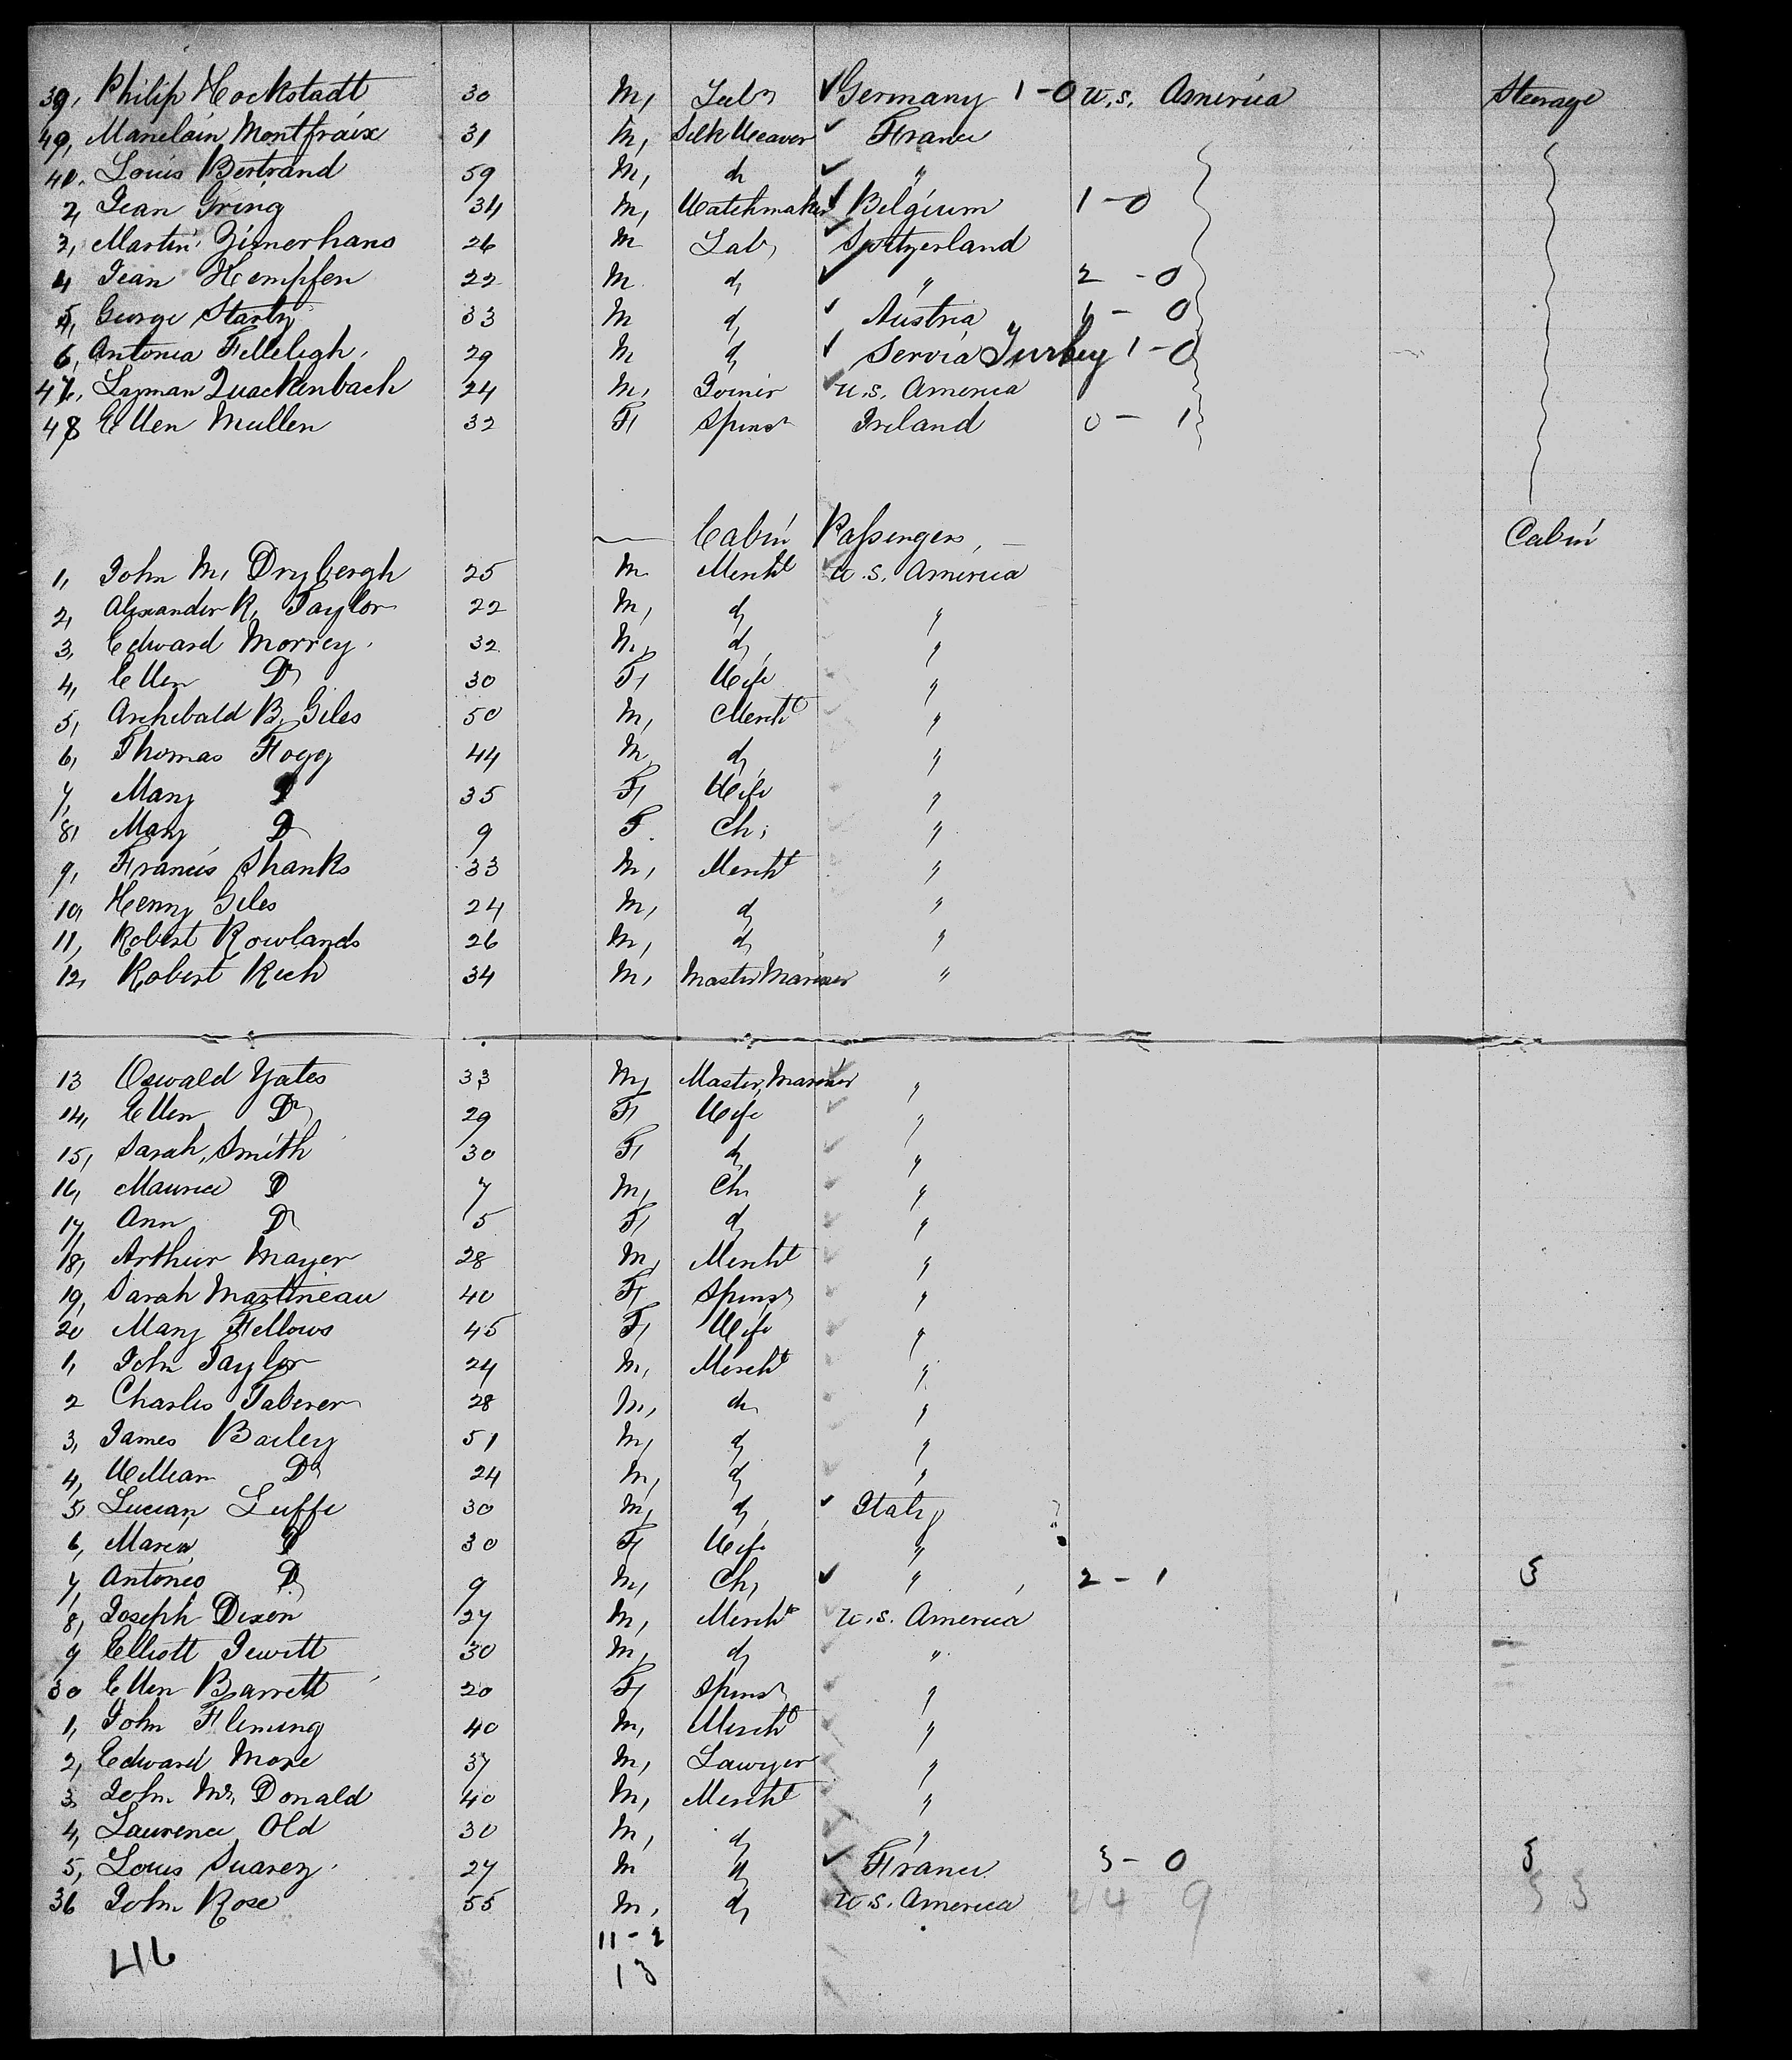 39, Philip Hockstadt 30 M, Labr Germany 1-0 U.S. America Steerage
40, Manelain Montfraix 31 M, Silk Weaver France
41. Louis Bertrand 59 M, do "
2, Jean Gring 34 M, Watchmaker Belgium 1-0
3, Martin Zimerhans 26 M Labr Switzerland
4 Jean Hempfen 22 M d, " 2-0
5, George Starty 33 M d, Austria 1-0
6, Antonia Felleligh, 29 M d, Servia Turkey 1-0
47, Layman Quackenbach 24 M, Joiner U.S. America
48 Ellen Mullen 32 F, Spinsr Ireland 0-1
Cabin Passengers, Cabin
1, John M, Drybergh 25 M Mercht U.S. America
2, Alexander R, Taylor 22 M, d, "
3, Edward Morrey. 32 M, d, "
4, Ellen Do 30 F, Wife "
5, Archibald B, Giles 50 M, Mercht "
6, Thomas Fogg 44 M, d, "
7, Mary D 35 F, Wife "
8, Mary D 9 F. Ch, "
9, Francis Shanks 33 M, Mercht "
10, Henry Giles 24 M, d, "
11, Robert Rowlands 26 M, d, "
12, Robert Rech 34 M, Master Mariner "
13 Oswald Yates 33 M, Master Mariner "
14, Ellen Do 29 F, Wife "
15, Sarah Smith 30 F, d, "
16, Maurice D 7 M, Ch, "
17, Ann D 5 F, d, "
18, Arthur Mayer 28 M, Mercht "
19, Sarah Martineau 40 F, Spinsr "
20 Mary Fellows 45 F, Wife "
1, John Taylor 24 M, Mercht "
2 Charles Taberer 28 M, do "
3, James Bailey 51 M, d, "
4, William Do 24 M, d, "
5, Lucian Luffi 30 M, d, Italy
6, Maria D 30 F, Wife "
7, Antonio D 9 M, Ch, " 2-1 3
8, Joseph Dixon 27 M, Mercht U.S. America
9 Elliott Jewitt 30 M, d, "
30 Ellen Barrett 20 F, Spinsr "
1, John Fleming 40 M, Mercht "
2, Edward More 37 M, Lawyer "
3, John Mc, Donald 40 M, Mercht "
4, Laurence Old 30 M, d, "
5, Louis Suarez. 27 M d, France 3-0 3
36 John Rose 55 M, d, U.S. America 24 9 33
11-2
46 13